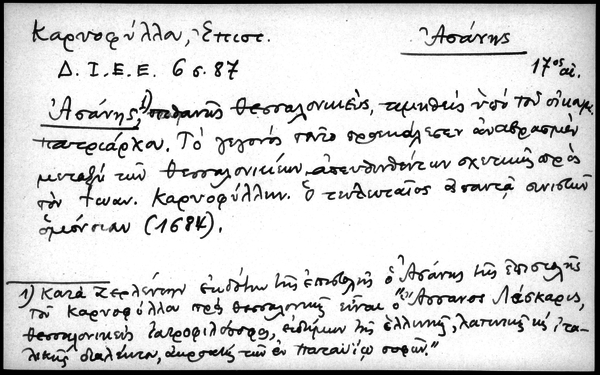 Καρυοφύλλου, Ἐπιστ.
Ἀσάνης
Δ. Ι. Ε. Ε. 6 σ. 87
17ος αἰ.
Ἀσάνης,1) πιθανῶς Θεσσαλονικεύς, τιμηθείς ὑπό τοῦ οἰκουμ.
πατριάρχου. Τό γεγονός τοῦτο προεκάλεσεν ἀναβρασμόν
μεταξύ τῶν Θεσσαλονικέων, ἀπευθυνθέντων σχετικῶς πρός
τόν Ἰωάν. Καρυοφύλλην. Ὁ τελευταῖος ἀπαντᾷ συνιστῶν
ὁμόνοιαν (1684).
1) Κατά Περλέντην ἐκδότην τῆς ἐπιστολῆς ὁ Ἀσάνης τῆς ἐπιστολῆς
τοῦ Καρυοφύλλου πρός Θεσσαλονικεῖς εἶναι ὁ "Ἀσσανος Λάσκαρις,
Θεσσαλονικεύς ἰατροφιλόσοφος, εἰδήμων τῆς ἑλληνικῆς, λατινικῆς καί ἰτα-
λικῆς διαλέκτου, ἀκροατής τῶν ἐν Παταυΐῳ σοφῶν."